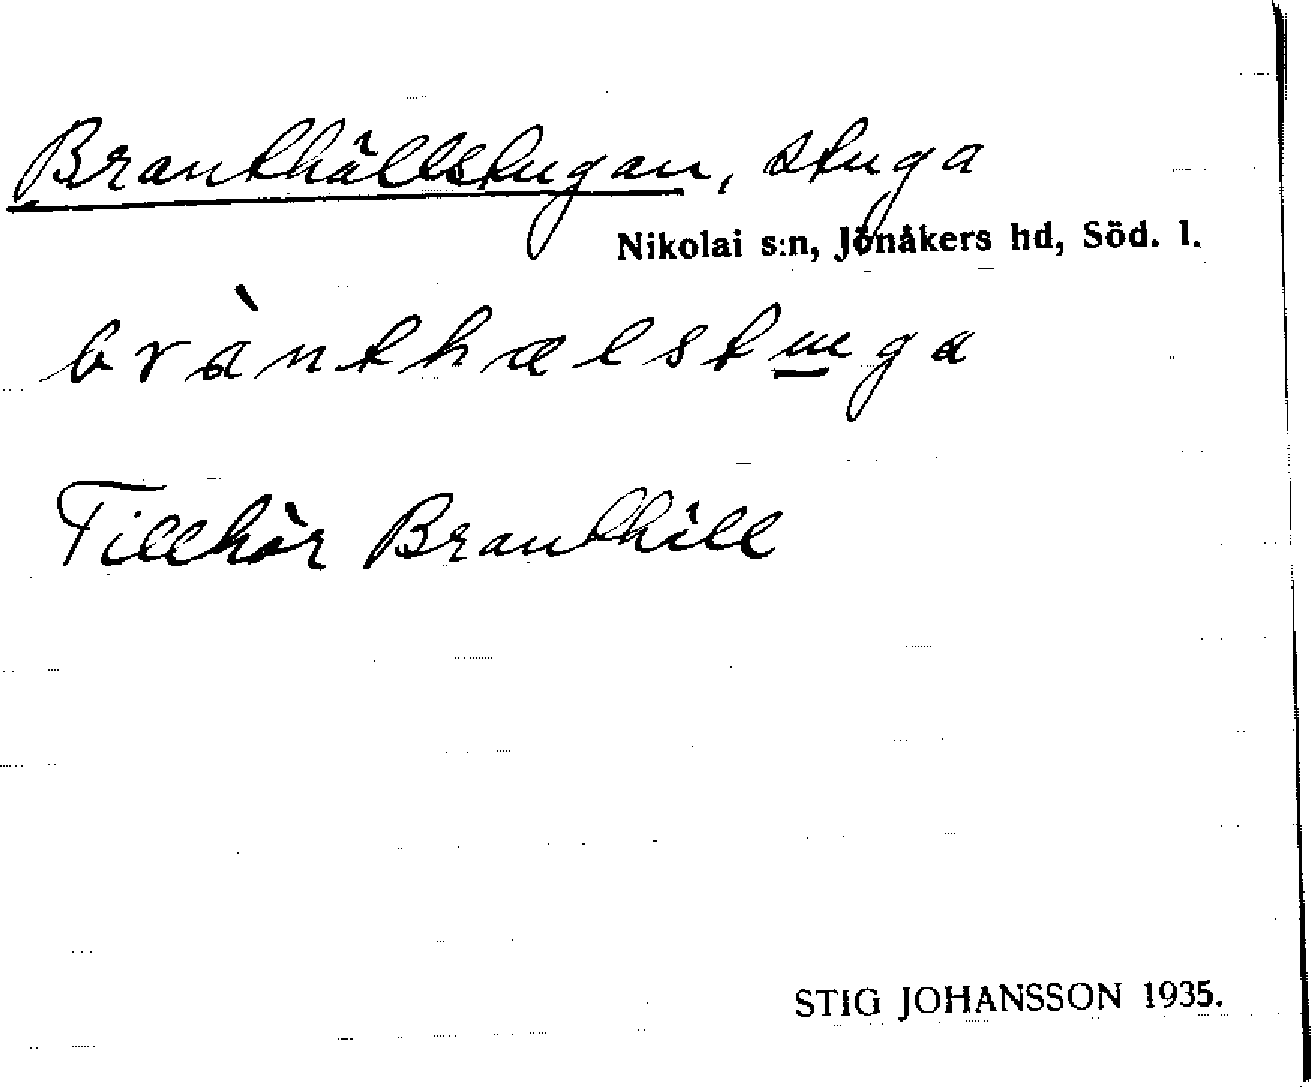 Branthällstugan, stuga
Nikolai s:n, Jönåkers hd, Söd. l.
brànthælstuga
Tillhör Branthäll
STIG JOHANSSON 1935.